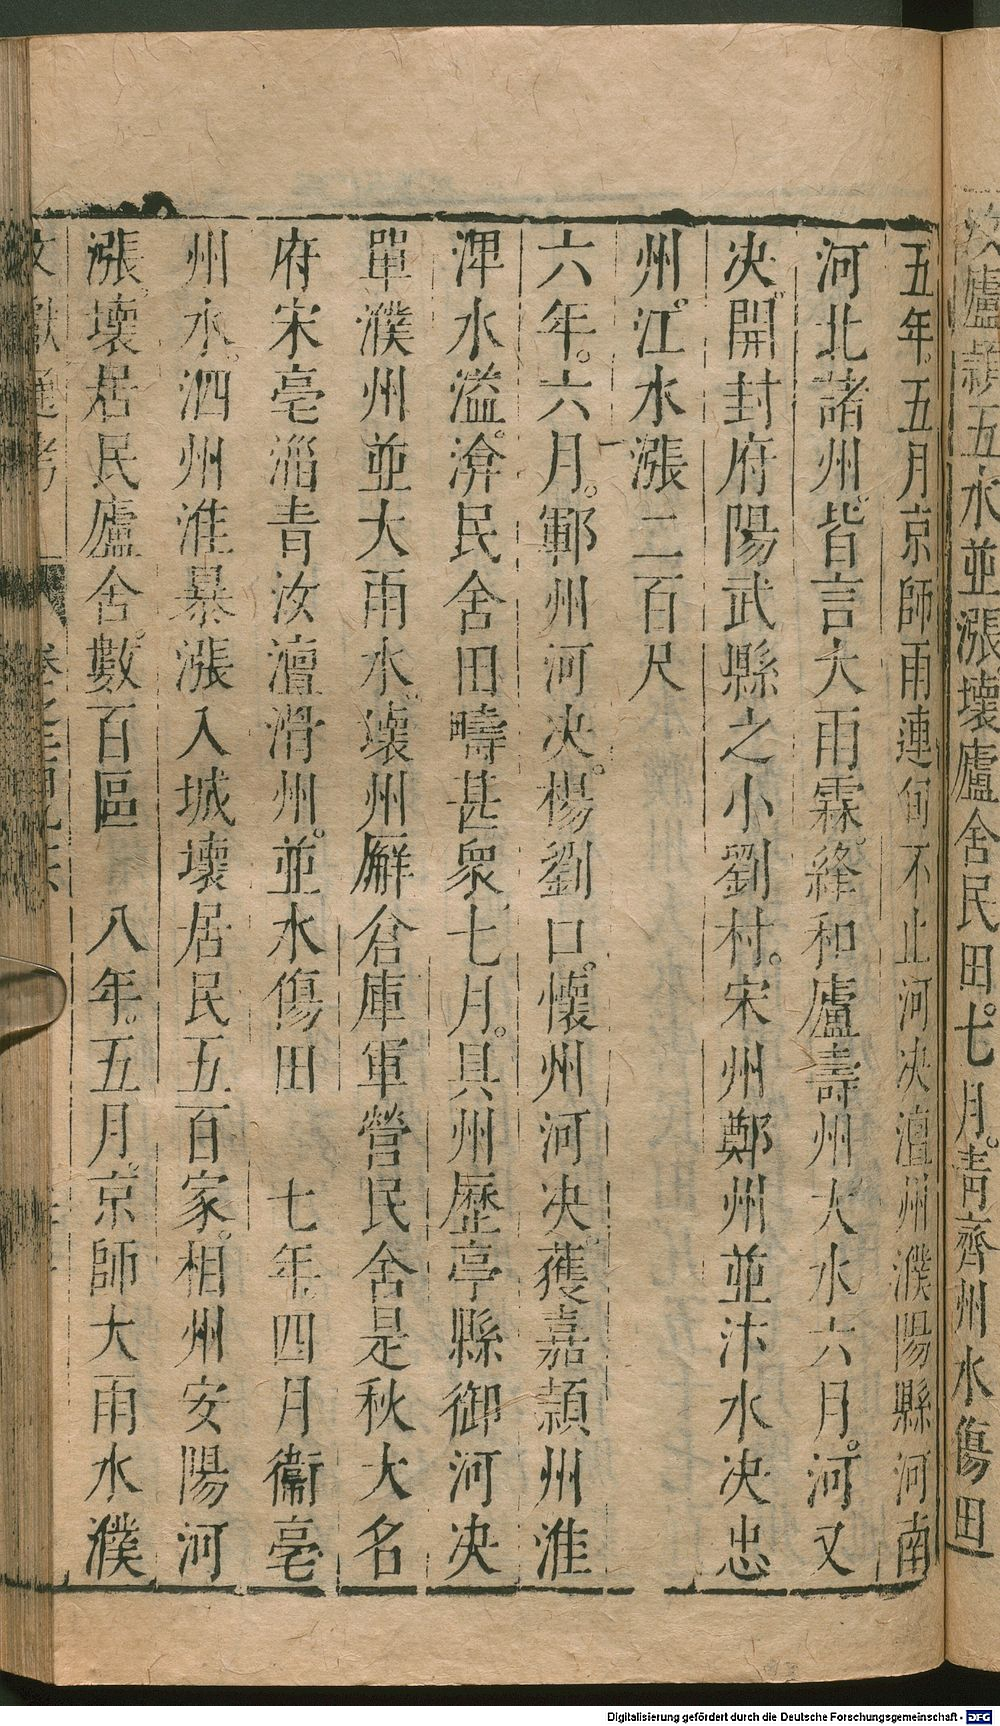 汝廬潁五水並漲壞廬舍民田七月青齊州水傷田
五年五月京師雨連旬不止河决澶州濮陽縣河南
河北諸州皆言大雨霖絳和廬壽州大水六月河又
决開封府陽武縣之小劉村宋州鄭州並汴水决忠
州江水漲二百尺
六年六月鄆州河决楊劉口懷州河决獲嘉潁州淮
渒水溢渰民舍田疇甚衆七月具州歷亭縣御河决
單濮州並大雨水壞州廨倉庫軍營民舍是秋大名
府宋亳淄青汝澶滑州並水傷田 七年四月衞亳
州水泗州淮暴漲入城壞居民五百家相州安陽河
漲壞居民廬舍數百區 八年五月京師大雨水濮
文獻通考
Digitalisierung gefördert durch die Deutsche Forschungsgemeinschaft - DFG